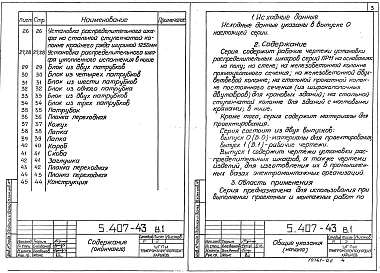 Лист
Стр.
Наименование
Примечание
26 26 Установка распределительного шкафа на стальной ступенчатой колонне крайнего ряда шириной 1250мм
27,28 27,28 Установка распределительного шкафа утепленного исполнения в нише
29 29 Блок из двух патрубков
30 30 Блок из четырех патрубков
31 31 Блок из шести патрубков
32 32 Блок из одного патрубка
33 33 Блок из двух патрубков
34 34 Блок из трех патрубков
35 35 Патрубок
36 36 Планка переходная
37 37 Кожух
38 38 Лапка
39 39 Лапка
40 40 Короб
41 41 Скоба
42 42 Заглушка
43 43 Планка переходная
44 44 Планка переходная
45 45 Конструкция
5.407-43 В.1
Содержание
(окончание)
3
1. Исходные данные
Исходные данные указаны в выпуске 0
настоящей серии.
2. Содержание
Серия содержит рабочие чертежи установки
распределительных шкафов серии
на полу, на стене; на железобетонной колонне
прямоугольного сечения; на железобетонной двух-
ветвевой колонне; на стальной колонне
постоянного сечения (из широкополочных
двутавров) для крановых зданий; на стальной
ступенчатой колонне для зданий с мостовыми
кранами; в нише.
Кроме того, серия содержит материалы для
проектирования.
Серия состоит из двух выпусков:
Выпуск 0 (В.0)-материалы для проектирования
Выпуск 1 (В.1)-рабочие чертежи.
Выпуск 1 содержит чертежи установки рас-
пределительных шкафов, а также чертежи
изделий, для изготовления их в промышлен-
ных базах электромонтажных организаций.
3. Область применения
Серия предназначена для использования при
выполнении проектных и монтажных работ по
5.407-43 В.1
Общие указания
(начало)